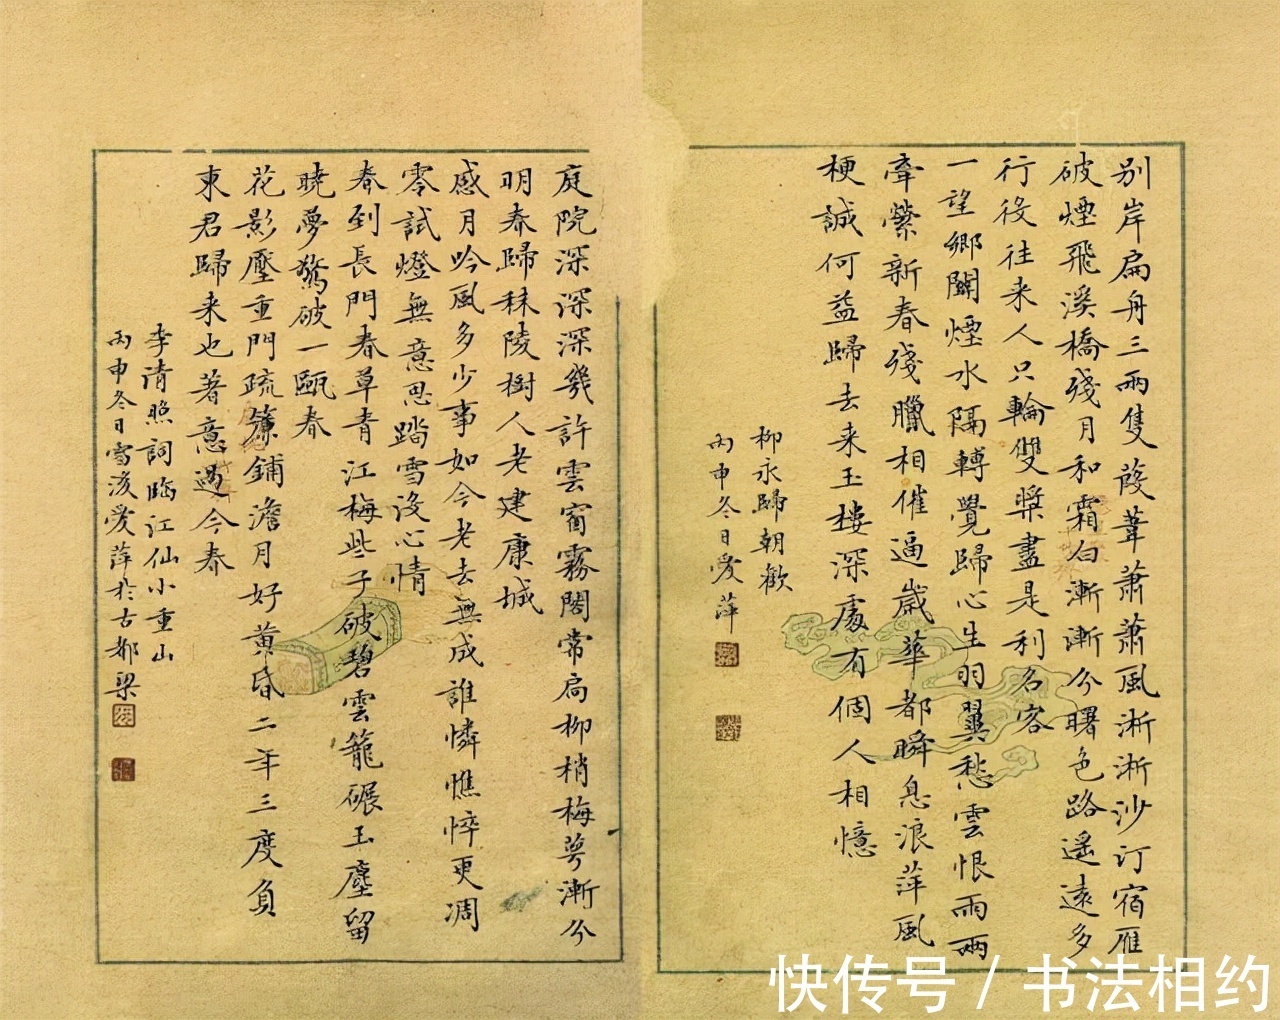 别岸扁舟三兩隻葭葦蕭蕭風淅淅沙汀宿雁
破煙飛溪橋殘月和霜白漸漸分曙色路遥遠多
行役往来人只輪雙槳盡是利名客
一望鄉關煙水隔轉覺歸心生羽翼愁雲恨雨兩
牽縈新春殘臘相催逼歲華都瞬息浪萍風
梗誠何益歸去来玉樓深處有個人相憶
柳永歸朝歡
丙申冬日愛萍
庭院深深深幾許雲窗霧閣常扃柳梢梅萼漸分
明春歸秣陵樹人老建康城
感月吟風多少事如今老去無成誰憐憔悴更凋
零試燈無意思踏雪沒心情
春到長門春草青江梅些子破碧雲籠碾玉塵留
曉夢驚破一甌春
花影壓重門疏簾鋪澹月好黄昏二年三度負
東君歸来也著意過今春
李清照詞臨江仙小重山
丙申冬日雪後愛萍於古都梁
快传号 / 书法相约